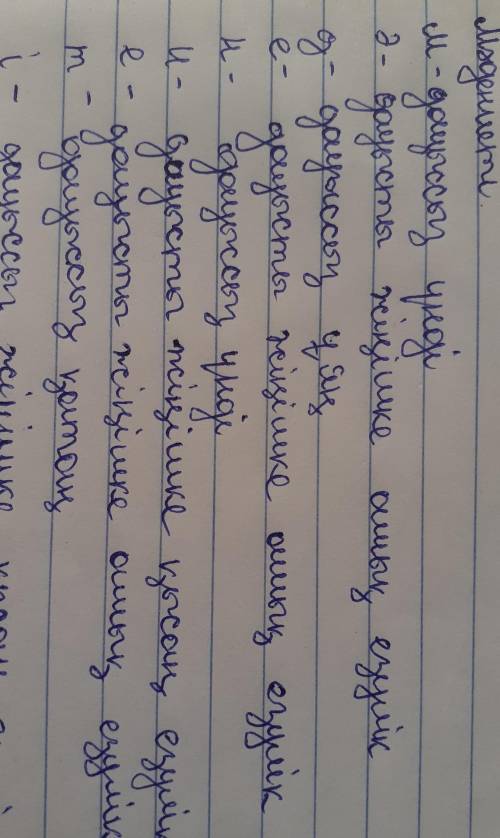 Мәдениеті.
м - дауыссыз үнді
ә - дауысты жіңішке ашық езулік
д - дауыссыз ұяң
е - дауысты жіңішке ашық езулік
н - дауыссыз үнді
и - дауысты жіңішке қысаң езулік
е - дауысты жіңішке ашық езулік
т - дауыссыз қатаң
і - жіңішке